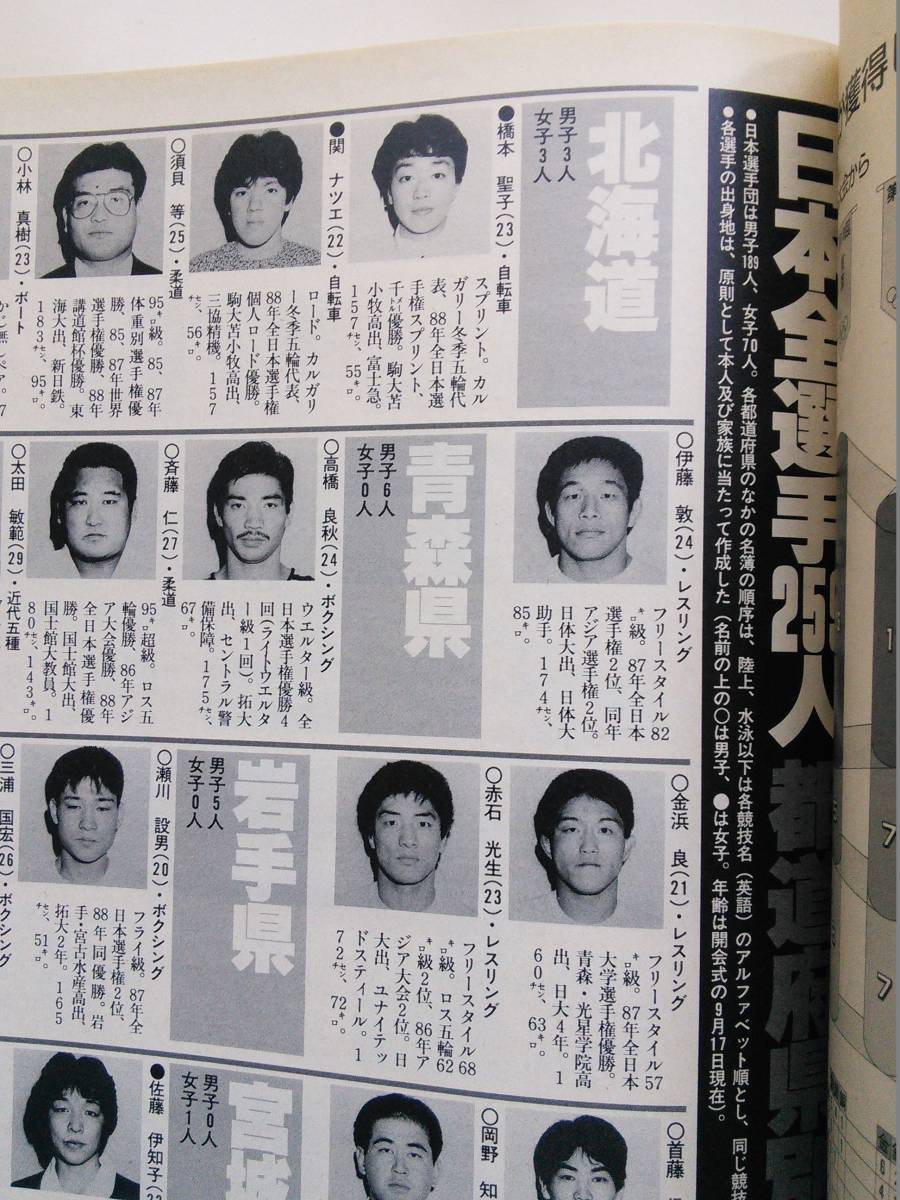 日本全選手25
人 都道府県別
●日本選手団は男子189人、女子70人。各都道府県のなかの名簿の順序は、陸上、水泳以下は各競技名（英語）のアルファベット順とし、同じ競技
●各選手の出身地は、原則として本人及び家族に当たって作成した（名前の上の○は男子、●は女子。年齢は開会式の9月17日現在）。
北海道
男子3人
女子3人
●橋本 聖子(23)・自転車
スプリント。カル
ガリー冬季五輪代
表、88年全日本選
手権スプリント、
千メートル優勝。駒大苫
小牧高出、富士急。
157センチ、55キロ。
●関 ナツエ(22)・自転車
ロード。カルガリ
ー冬季五輪代表、
88年全日本選手権
個人ロード優勝。
駒大苫小牧高出、
三協精機。157
センチ、56キロ。
○須貝 等(25)・柔道
95キロ級。85、87年
体重別選手権優
勝、85、87年世界
選手権優勝、88年
講道館杯優勝。東
海大出、新日鉄。
183センチ、95キロ。
○小林 真樹(23)・ボート
○伊藤 敦(24)・レスリング
フリースタイル82
キロ級。87年全日本
選手権2位、同年
アジア選手権2位。
日体大出、日体大
助手。174センチ、
85キロ。
青森県
男子6人
女子0人
○高橋 良秋(24)・ボクシング
ウエルター級。全
日本選手権優勝4
回(ライトウエルタ
ー級1回)。拓大
出、セントラル警
備保障。175センチ、
67キロ。
○斉藤 仁(27)・柔道
95キロ超級。ロス五
輪優勝、86年アジ
ア大会優勝、88年
全日本選手権優
勝。国士舘大出、
国士舘大教員。1
80センチ、143キロ。
○太田 敏範(29)・近代五種
○金浜 良(21)・レスリング
フリースタイル57
キロ級。87年全日本
大学選手権優勝。
青森・光星学院高
出、日大4年。1
60センチ、63キロ。
○赤石 光生(23)・レスリング
フリースタイル68
キロ級。ロス五輪62
キロ級2位、86年ア
ジア大会2位。日
大出、ユナイテッ
ドスティール。1
72センチ、72キロ。
岩手県
男子5人
女子0人
○瀬川 設男(20)・ボクシング
フライ級。87年全
日本選手権2位、
88年同優勝。岩
手・宮古水産高出、
拓大2年。165
センチ、51キロ。
○三浦 国宏(26)・ボクシング
○首藤
○岡野 知
宮城
男子0人
女子1人
●佐藤 伊知子(23
獲得
会から
第
1
7
7